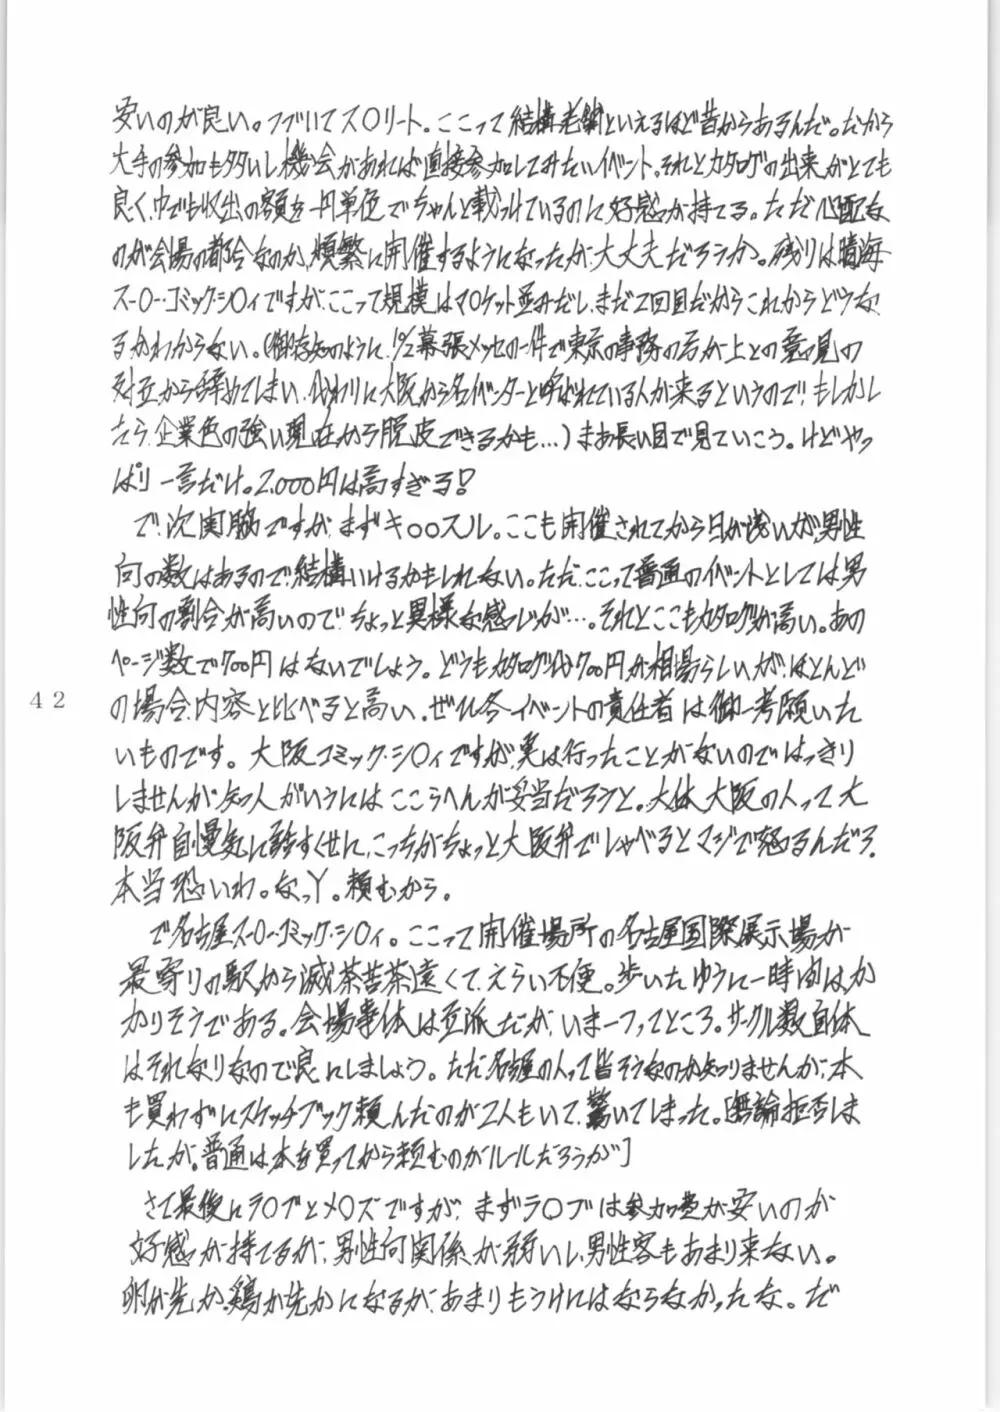 安いのが良い。つづいてス〇リート。ここって結構老舗といえるほど昔からあるんだ。だから
大手の参加も多いし機会があれば直接参加してみたいイベント。それとカタログの出来がとても
良く、中でも収出の額を一円単色でちゃんと載っけているのに好感が持てる。ただ心配な
のが会場の都合なのか、頻繁に開催するようになったが、大丈夫だろうか。残りは晴海
ス-〇-・コミック・シ〇ィですが、ここって規模はマ〇ケット並みだし、まだ2回目だからこれからどうな
るかわからない。(御存知のように、10/2幕張メッセの一件で東京の事務の方が上との意見の
対立から辞めてしまい、代わりに大阪から名イベンターと呼ばれている人が来るというので、もしかし
たら、企業色の強い現在から脱皮できるかも…)まあ長い目で見ていこう。けどやっ
ぱり一言だけ。2,000円は高すぎる!
で、次実脇ですが、まずキ〇〇スル。ここも開催されてから日が浅いが、男性
向の数はあるので、結構いけるかもしれない。ただ、ここって普通のイベントとしては男
性向の割合が高いので、ちょっと異様な感じが…。それとここもカタログが高い。あの
ページ数で700円はないでしょう。どうもカタログ代700円が相場らしいが、ほとんど
の場合、内容と比べると高い。ぜひ各イベントの責任者は御一考願いた
いものです。大阪コミック・シ〇ィですが、実は行ったことがないのではっきり
しませんが、知人がいうにはここらへんが妥当だろうと。大体大阪の人って大
阪弁自慢気に話すくせに、こっちがちょっと大阪弁でしゃべるとマジで怒るんだろ。
本当恐いわ。なっY。頼むから。
で名古屋ス-〇-・コミック・シ〇ィ。ここって開催場所の名古屋国際展示場が
最寄りの駅から滅茶苦茶遠くて、えらい不便。歩いたゆうに一時間はか
かりそうである。会場事体は立派だが、いま一つってところ。サークル数自体
はそれなりなので良にしましょう。ただ名古屋の人って皆そうなのか知りませんが、本
も買わずにスケッチブック頼んだのが2人もいて、驚いてしまった。[無論拒否しま
したが。普通は本を買ってから頼むのがルールだろうが]
さて最後にラ〇ブとメ〇ズですが、まずラ〇ブは参加費が安いのが
好感が持てるが、男性向関係が弱いし、男性客もあまり来ない。
卵が先か、鶏が先かになるが、あまりもうけにはならなかったな。だ
42